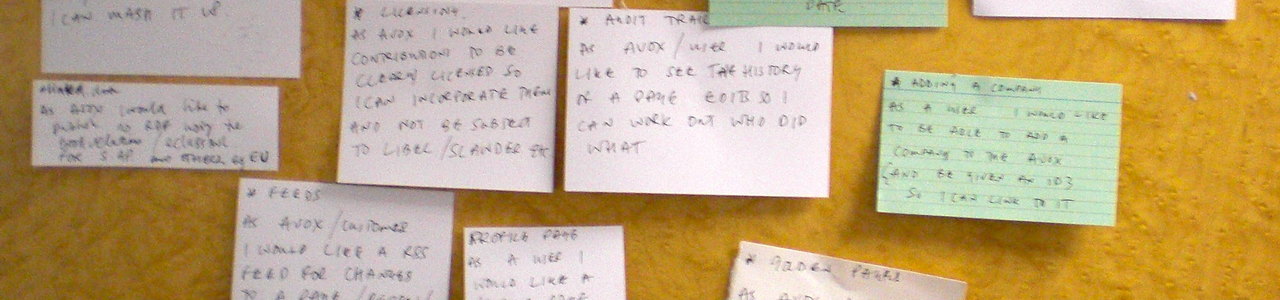 I CAN MASH IT UP.
* LICENSING.
AS AVOX I WOULD LIKE
CONTRIBUTIONS TO BE
CLEARLY LICENSED SO
I CAN INCORPORATE THEM
AND NOT BE SUBJECT
TO LIBEL/SLANDER ETC
* AUDIT TRAIL
AS AVOX/USER I WOULD
LIKE TO SEE THE HISTORY
OF A PAGE EDITS SO I
CAN WORK OUT WHO DID
WHAT
DATE
* ADDING A COMPANY
AS A USER I WOULD LIKE
TO BE ABLE TO ADD A
COMPANY TO THE AVOX
{AND BE GIVEN AN ID}
SO I CAN LINK TO IT
As AVOX I would like to
publish RDF using the
for SAP and others eg EU
* FEEDS
AS AVOX/CUSTOMER
I WOULD LIKE A RSS
FEED FOR CHANGES
TO A PAGE/
PROFILE PAGE
AS A USER I
WOULD LIKE A
* PAGES
AS AVOX